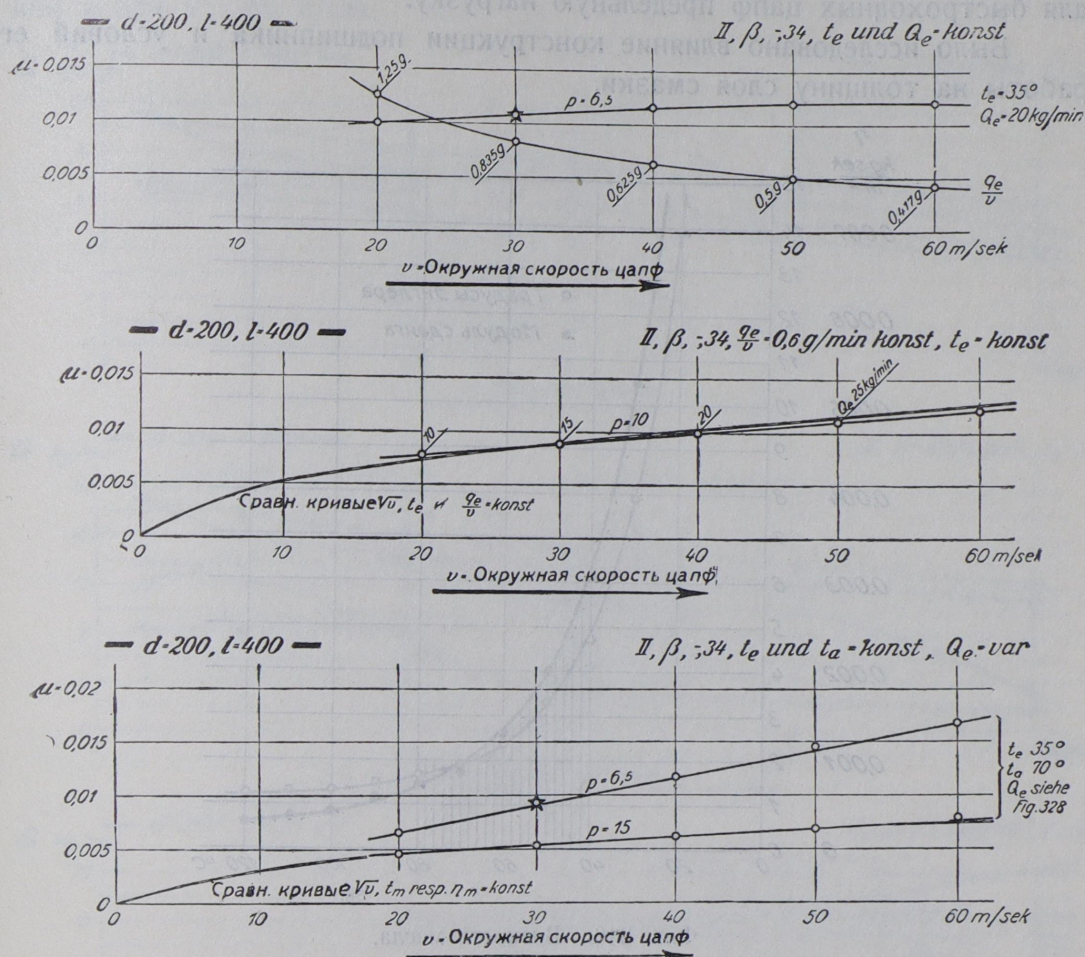 d=200, l=400
II, β, -;34, te und Qe=konst
μ=0,015
0,01
0,005
0
1,25g
0,835g
0,625g
0,5g
0,417g
p=6,5
te=35°
Qe=20kg/min
qe/v
0 10 20 30 40 50 60 m/sek
v=Окружная скорость цапф
d=200, l=400
II, β, -;34, qe/v=0,6g/min konst, te=konst
μ=0,015
0,01
0,005
0
10
15
p=10
20
Qe 25kg/min
Сравн. кривые √v, te и qe/v=konst
0 10 20 30 40 50 60 m/sek
v=Окружная скорость цапф
d=200, l=400
II, β, -;34, te und ta=konst, Qe=var
μ=0,02
0,015
0,01
0,005
0
p=6,5
p=15
te 35°
ta 70°
Qe siehe
Fig. 328
Сравн. кривые √v, tm resp. ηm=konst
0 10 20 30 40 50 60 m/sek
v=Окружная скорость цапф